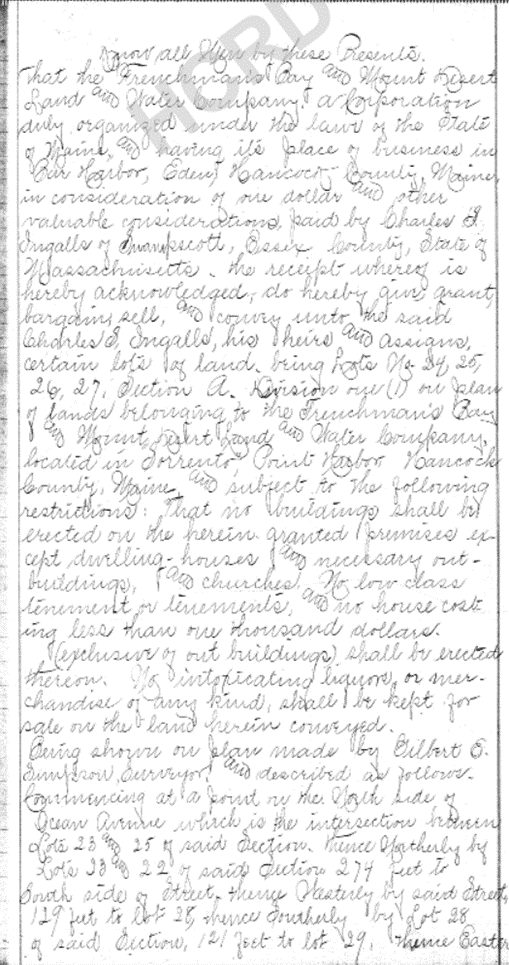 Know all Men by these Presents.
That the Frenchmans Bay and Mount Desert
Land and Water Company, a Corporation
duly organized under the laws of the State
of Maine, and having its place of business in
Bar Harbor, Eden, Hancock County, Maine,
in consideration of one dollar and other
valuable considerations, paid by Charles
Ingalls of Swampscott, Essex County, State of
Massachusetts, the receipt whereof is
hereby acknowledged, do hereby give, grant,
bargain, sell, and convey unto the said
Charles Ingalls, his heirs and assigns,
certain lots of land, being Lots No 24, 25,
26, 27, Section A. Division one (1) on plan
of lands belonging to the Frenchman's Bay
and Mount Desert Land and Water Company,
located in Sorrento, Point Harbor Hancock
County, Maine and subject to the following
restrictions: That no buildings shall be
erected on the herein granted premises ex-
cept dwelling-houses and necessary out-
buildings, and churches. No low class
tenement or tenements, and no house cost-
ing less than one thousand dollars.
(exclusive of out buildings) shall be erected
thereon. No intoxicating liquors or mer-
chandise of any kind, shall be kept for
sale on the land herein conveyed.
Being shown on plan made by Gilbert
Simpson, Surveyor, and described as follows.
Commencing at a point on the North side of
Ocean Avenue which is the intersection between
Lots 23 and 25 of said Section. thence Northerly by
Lots 23 and 22 of said Section 274 feet to
South side of Street, thence Westerly by said Street,
129 feet to lot 28, thence Southerly by Lot 28
of said Section, 121 feet to lot 29, thence Easter
HCRD